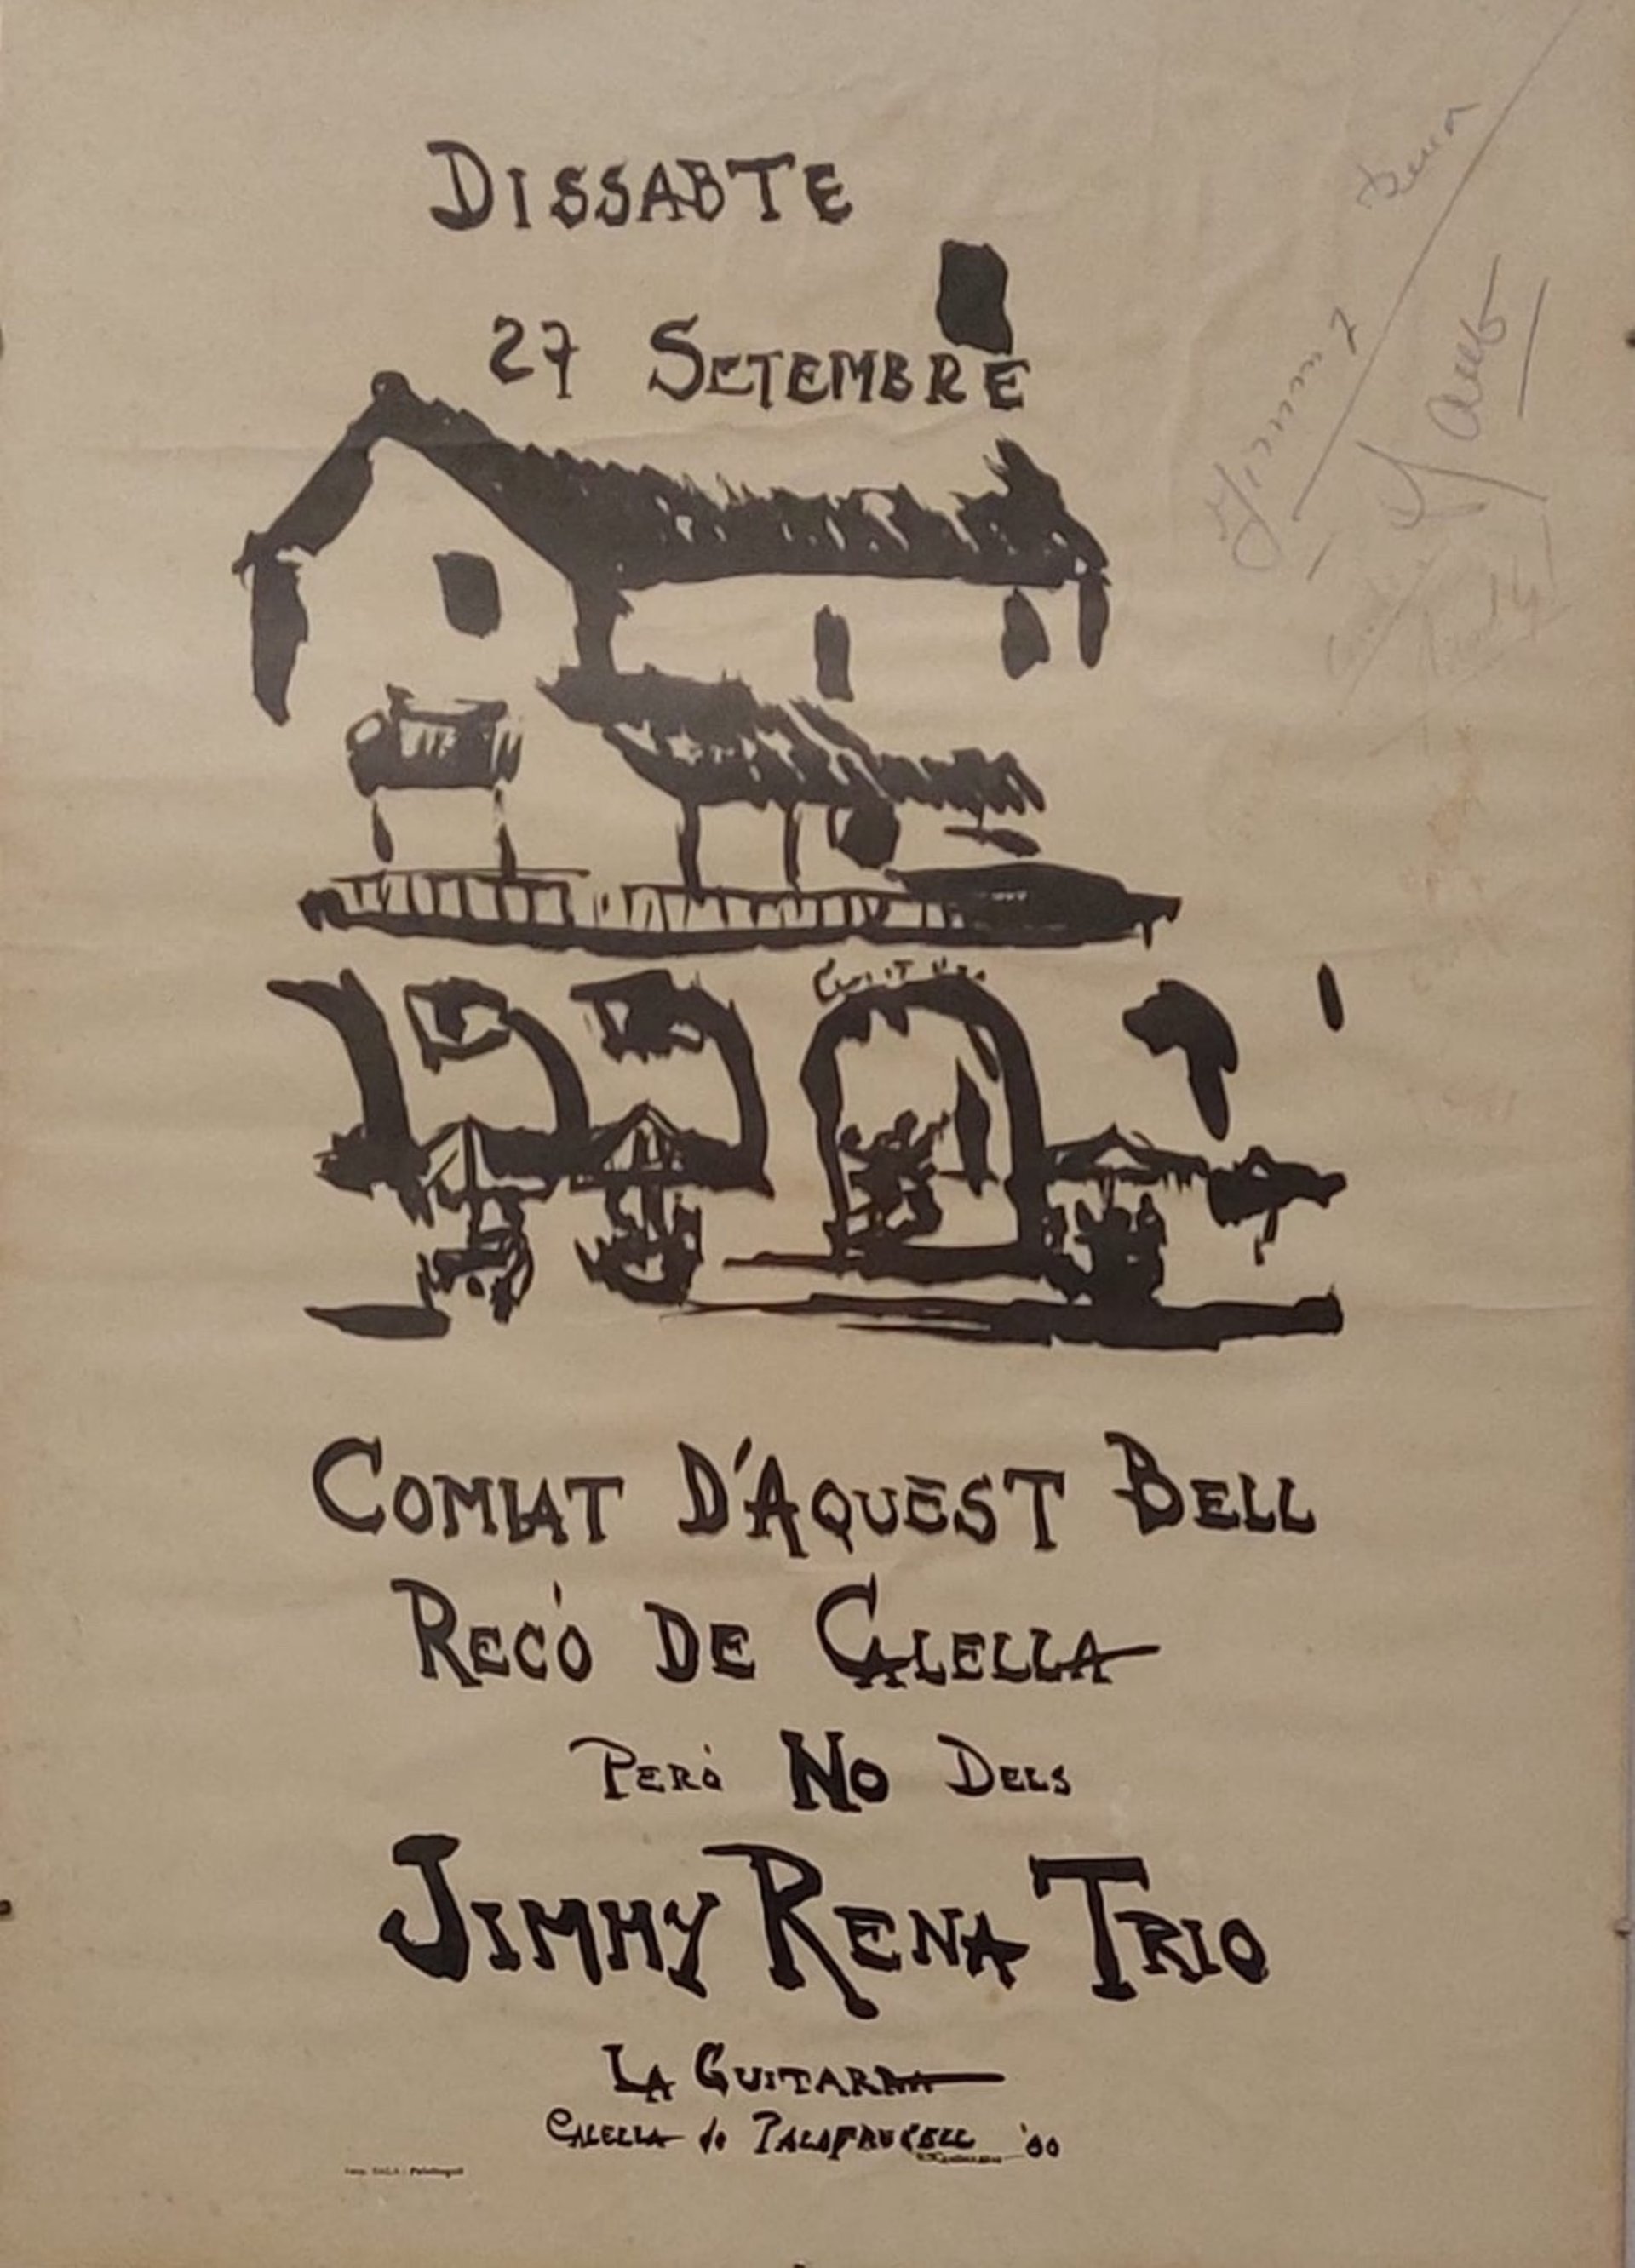 DISSABTE
27 SETEMBRE
COMIAT D'AQUEST BELL
RECÓ DE CALELLA
PERÒ NO DELS
JIMMY RENA TRIO
LA GUITARRA
CALELLA de PALAFRUGELL '80
Imp. SALA - Palafrugell
Jimmy Rena